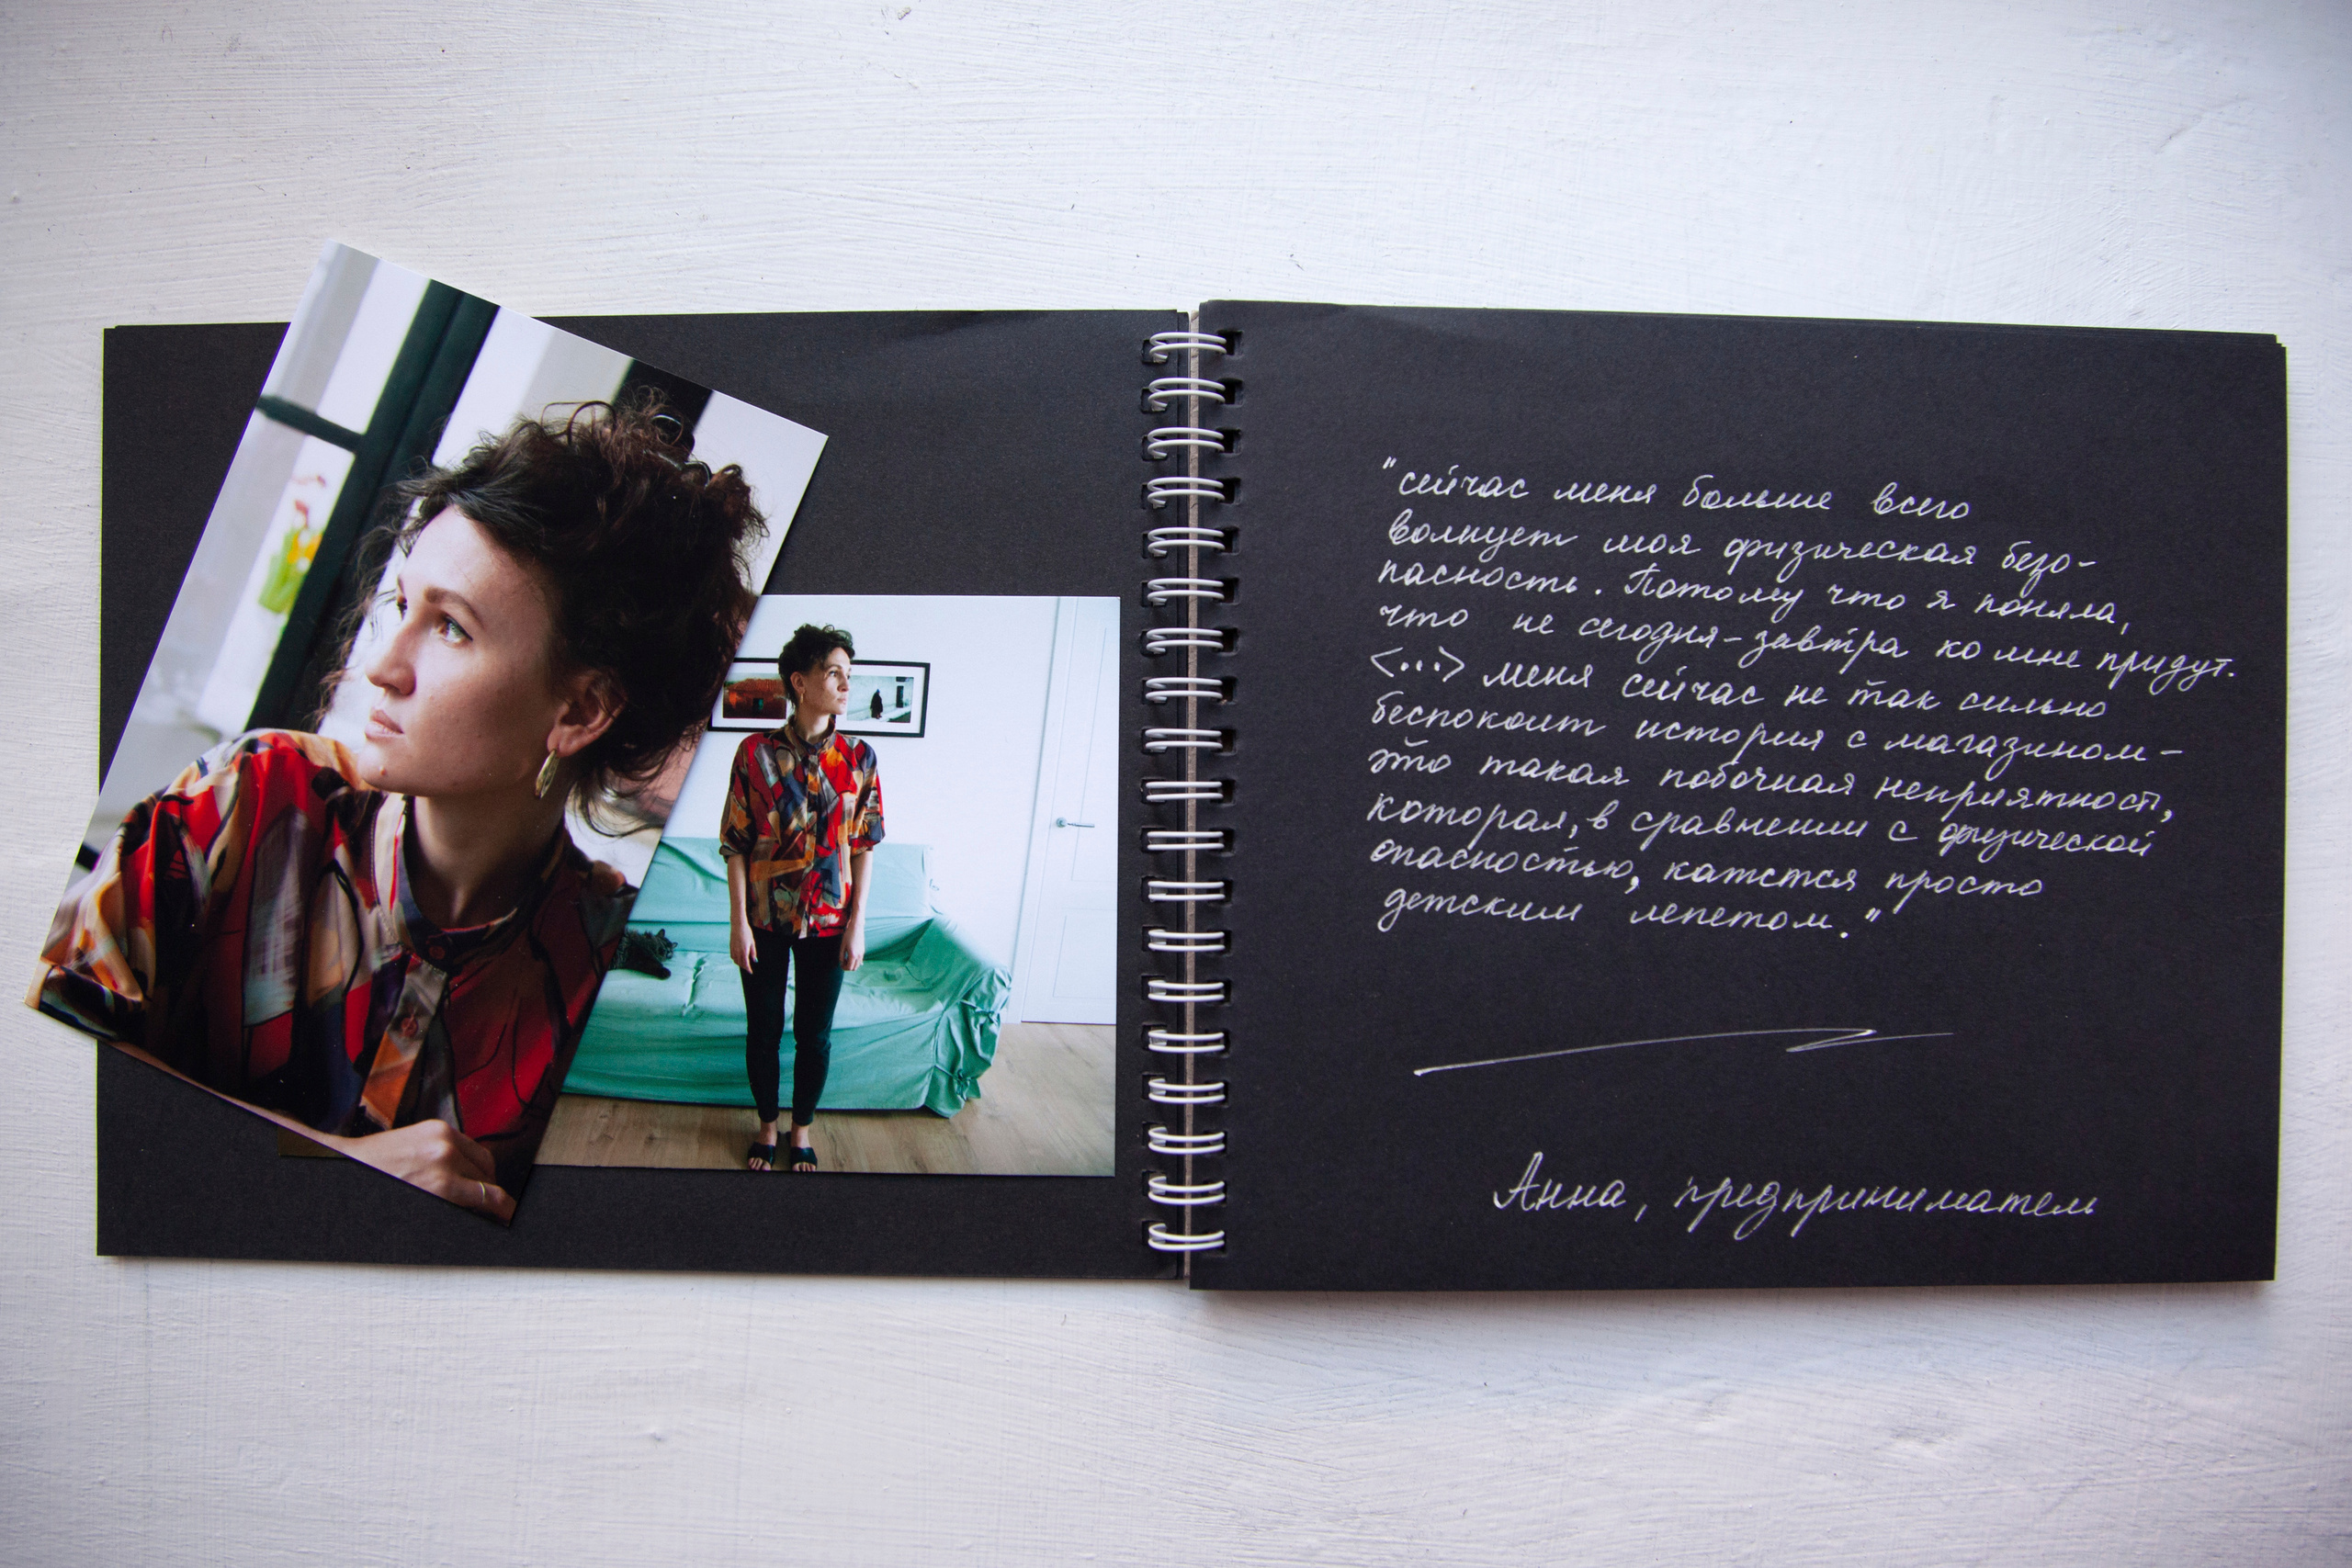 "сейчас меня больше всего
волнует моя физическая безо-
пасность. Потому что я поняла,
что не сегодня-завтра ко мне придут.
<...> меня сейчас не так сильно
беспокоит история с магазином-
это такая побочная неприятность,
которая, в сравнении с физической
опасностью, кажется просто
детским лепетом."
Анна, предприниматель